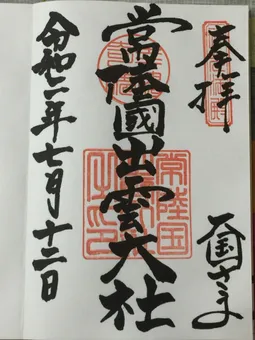 奉拝
大国さま
常陸國出雲大社
常陸国
令和二年七月十二日